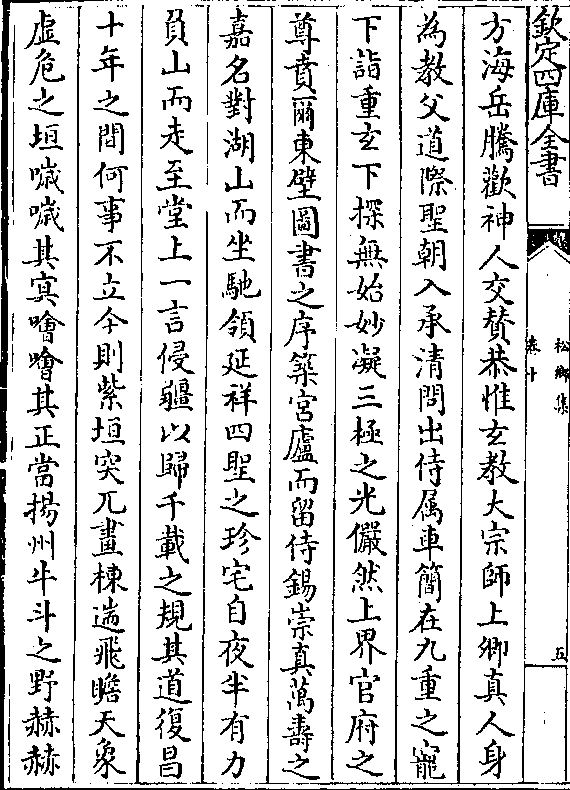 欽定四庫全書
松鄉集
卷十
五
方海岳騰歡神人交賛恭惟玄教大宗師上卿真人身
為教父道際聖朝入承清問出侍属車簡在九重之寵
下詣重玄下探無始妙凝三極之光儼然上界官府之
尊賁爾東壁圖書之序築宮廬而留侍錫崇真萬壽之
嘉名對湖山而坐馳領延祥四聖之珍宅自夜半有力
負山而走至堂上一言侵疆以歸千載之規其道復昌
十年之間何事不立今則紫垣突兀畫棟遄飛瞻天象
虛危之垣噦噦其寘噲噲其正當揚州牛斗之野赫赫